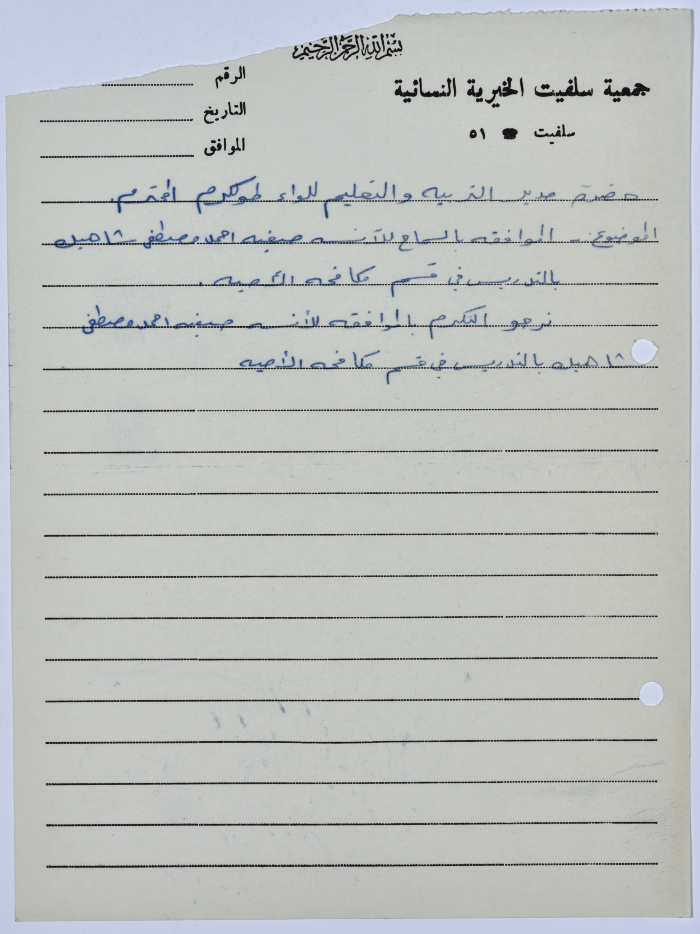 بسم الله الرحمن الرحيم
جمعية سلفيت الخيرية النسائية
سلفيت ☎ ٥١
الرقم
التاريخ
الموافق
حضرة مدير التربيه والتعليم للواء طولكرم المحترم.
الموضوع:- الموافقه بالسماح للآنسه صفيه احمد مصطفى شاهين
بالتدريس في قسم مكافحه الأميه .
نرجو التكرم بالموافقه للأنسه صفيه احمد مصطفى
شاهين بالتدريس في قسم مكافحه الأميه